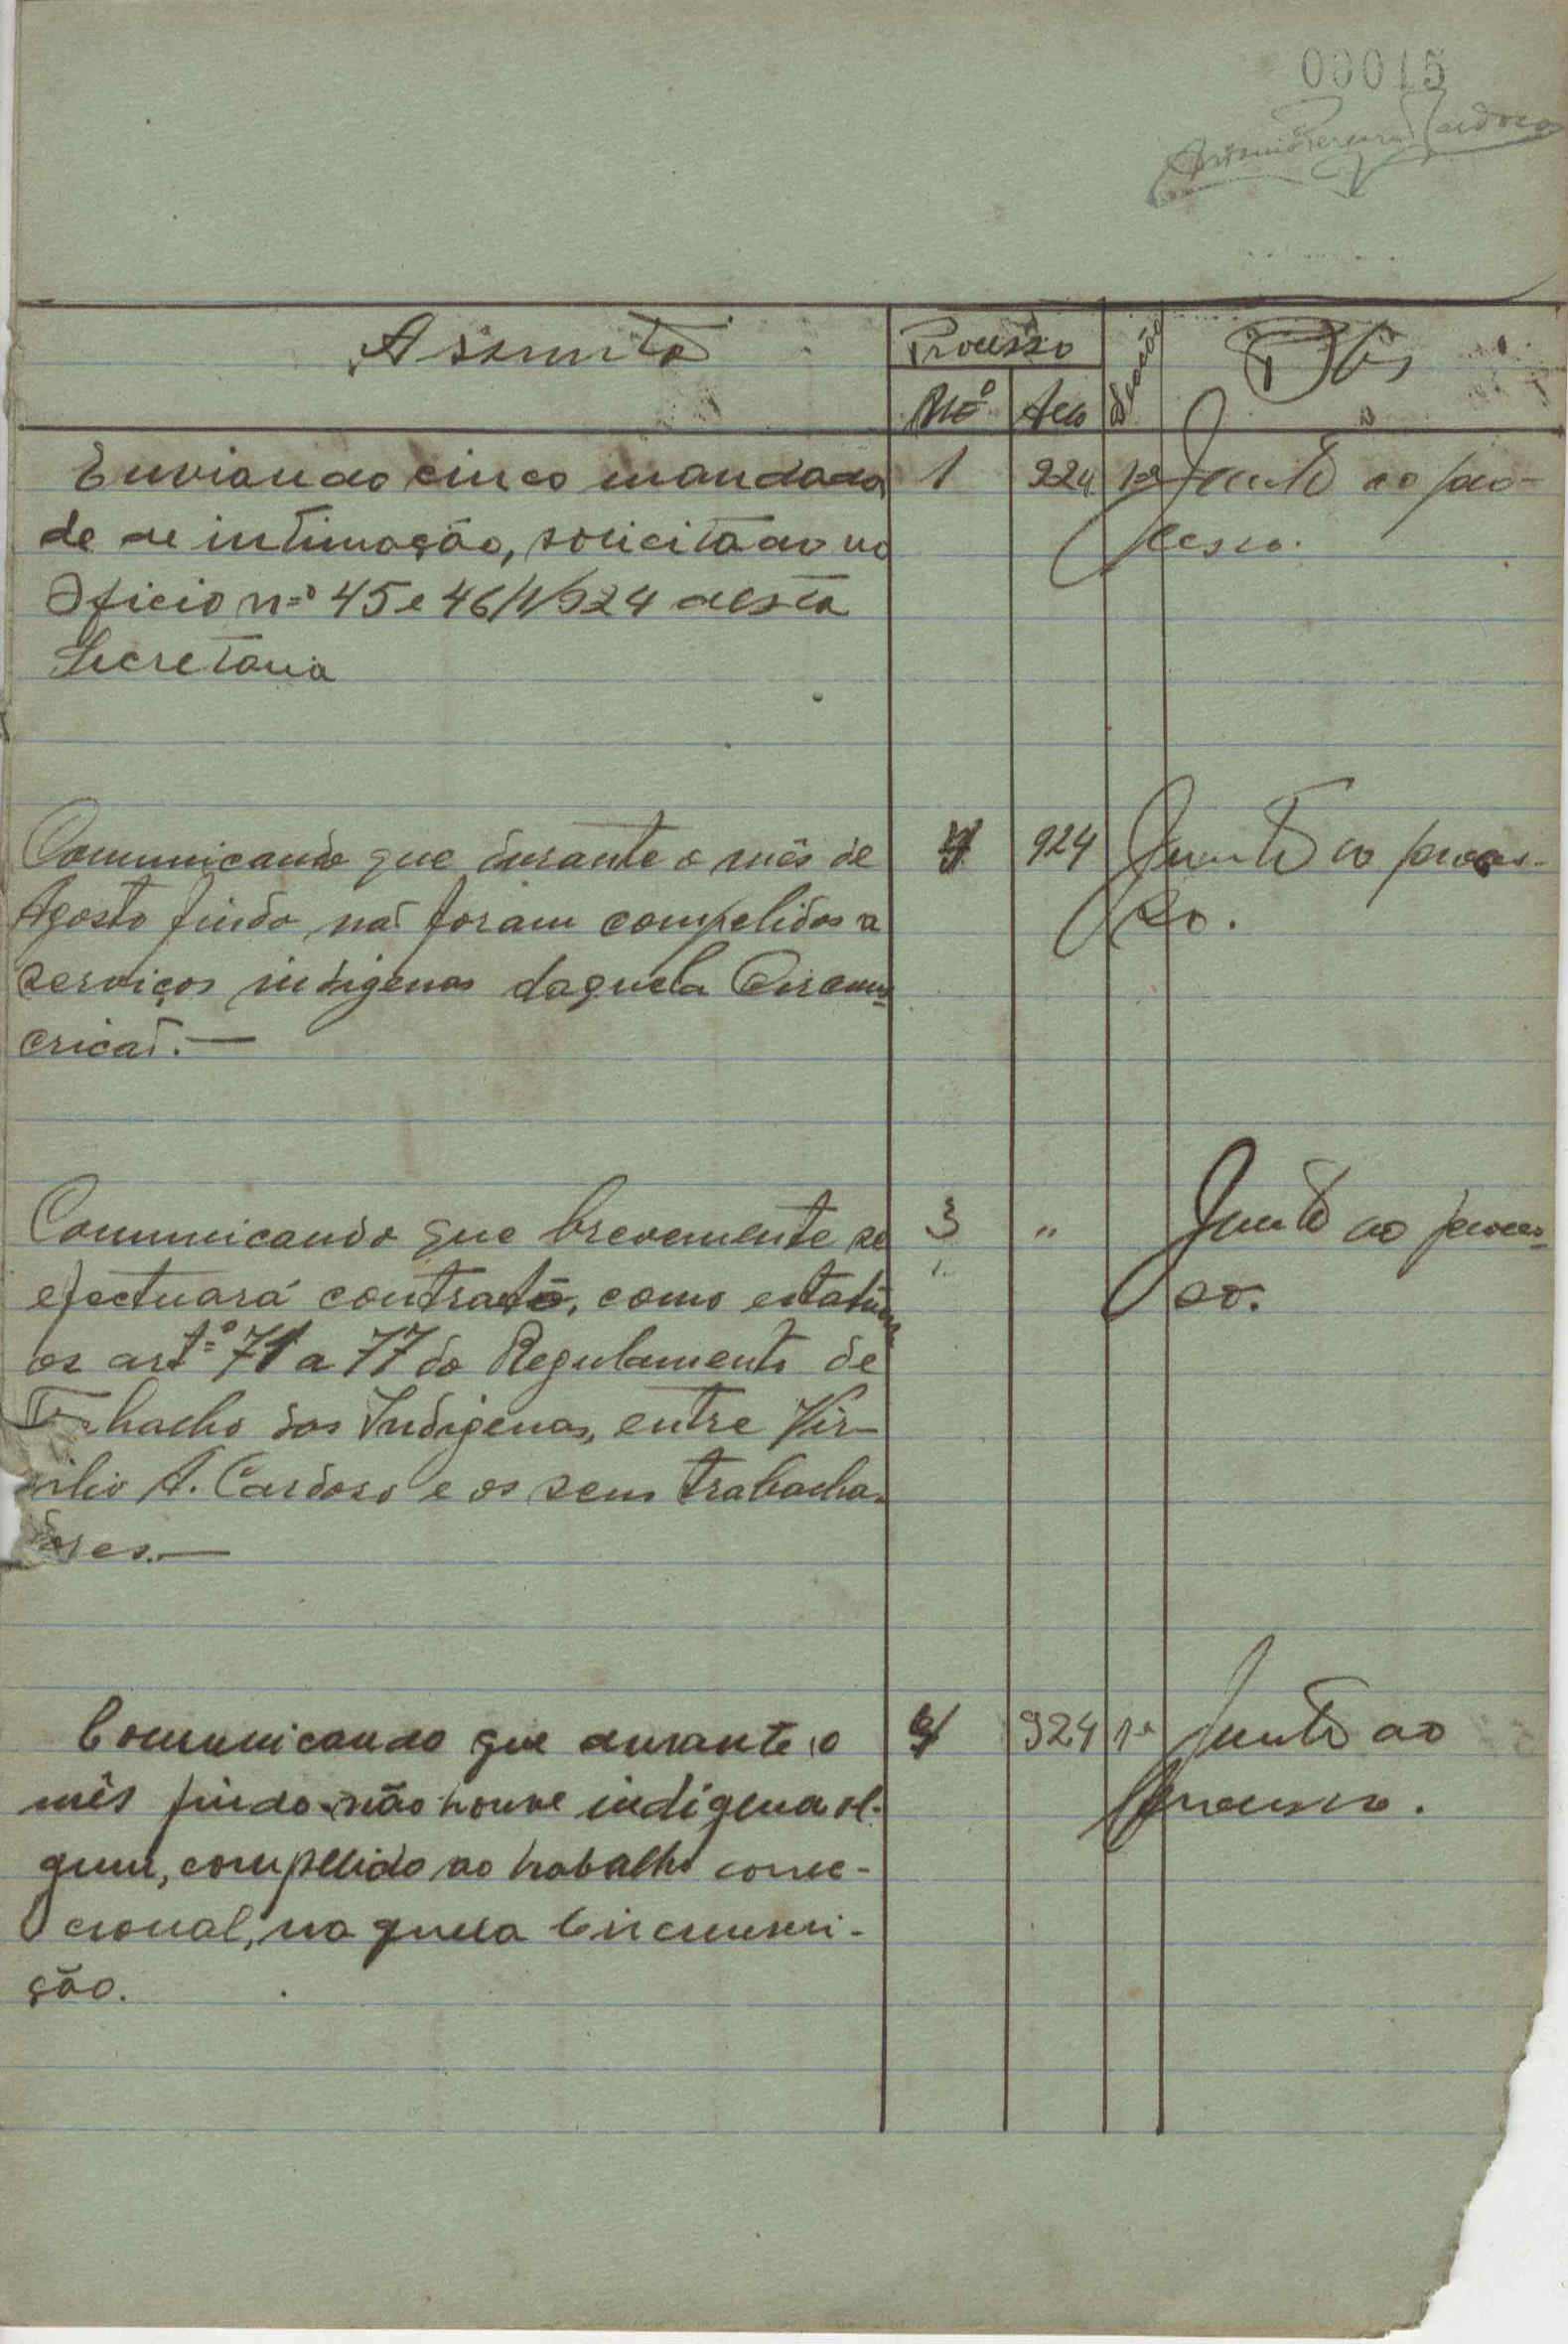 00015
Cardoso
Assunto
Processo
Secção
Nº
Ano
Enviando cinco mandado
de de intimação, solicitado no
Oficio nº 45 e 46/1/924 desta
Secretaria
1
924
1ª
Junto ao pro-
cesso.
Comunicando que durante o mês de
Agosto findo, não foram compelidos a
serviços indigenas daquela Circuns-
crição.—
924
Junto ao proces-
so.
Comunicando que brevemente se
efectuará contrato, como estatue
os artº 71 a 77 do Regulamento de
Trabalho dos Indigenas, entre Vir-
gilio A. Cardoso e os seus trabalha-
dores.—
3
"
Junto ao proces-
so.
Comunicando que durante o
mês findo não houve indígena al-
gum, compelido ao trabalho correc-
cional, na quela Circunscri-
ção.
924
1ª
Junto ao
processo.